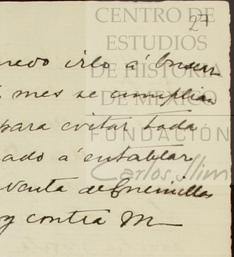 27
CENTRO DE
ESTUDIOS
DE HISTORIA
DE MEXICO
FUNDACIÓN
Carlos Slim
irlo á buscar
mes se cumplian
para evitar toda
ado á entablar
venta de
contra M